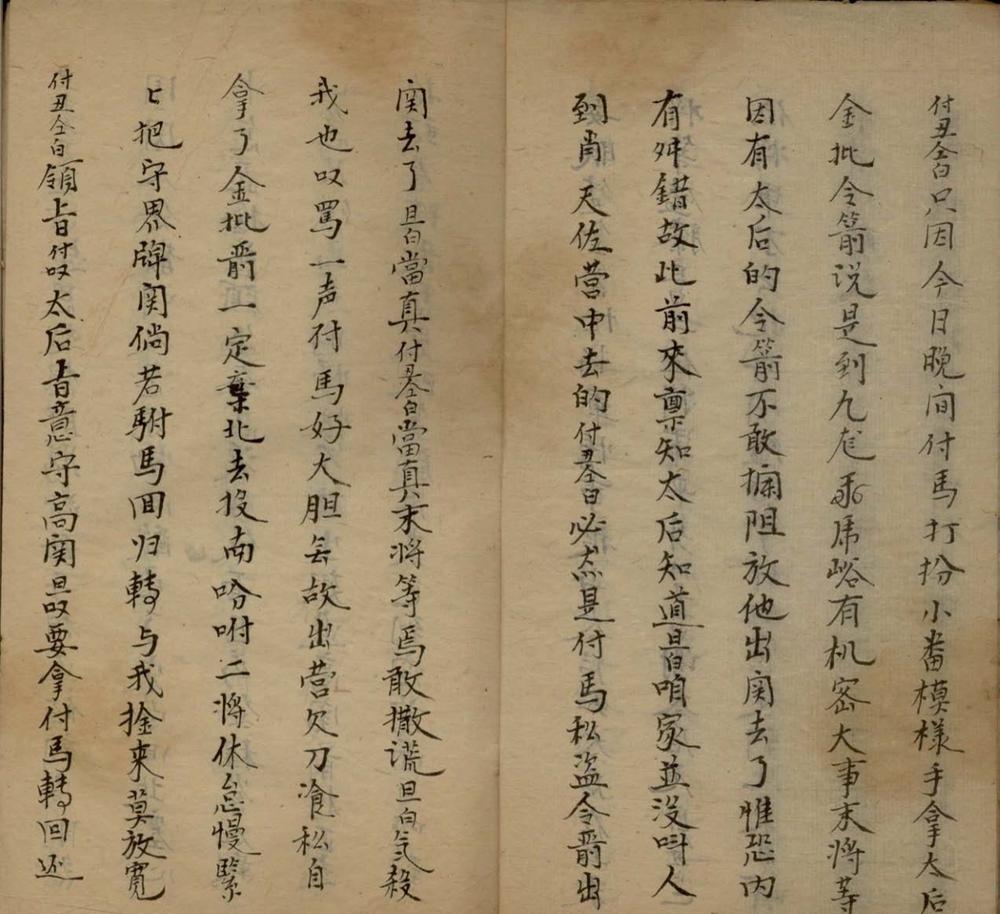 付丑仝白只因今日晚间付馬打扮小畨模樣手拿太后
金批令箭说是到九龙飛虎峪有机宻大事末将等
因有太后的令箭不敢攔阻放他出関去了惟恐内
有舛錯故此前來禀知太后知道旦白咱家並没呌人
到肖天佐营中去的付丑仝白必然是付馬私盗令箭出
関去了旦白當真付丑仝白當真末将等焉敢撒谎旦白气殺
我也叹罵一声付馬好大胆无故出营欠刀飡私自
拿了金批箭一定棄北去投南吩咐二将休怠慢緊
匕把守界牌関倘若駙馬囬归轉与我擒来莫放寛
付丑仝白領旨付叹太后旨意守高関旦叹要拿付馬轉回还